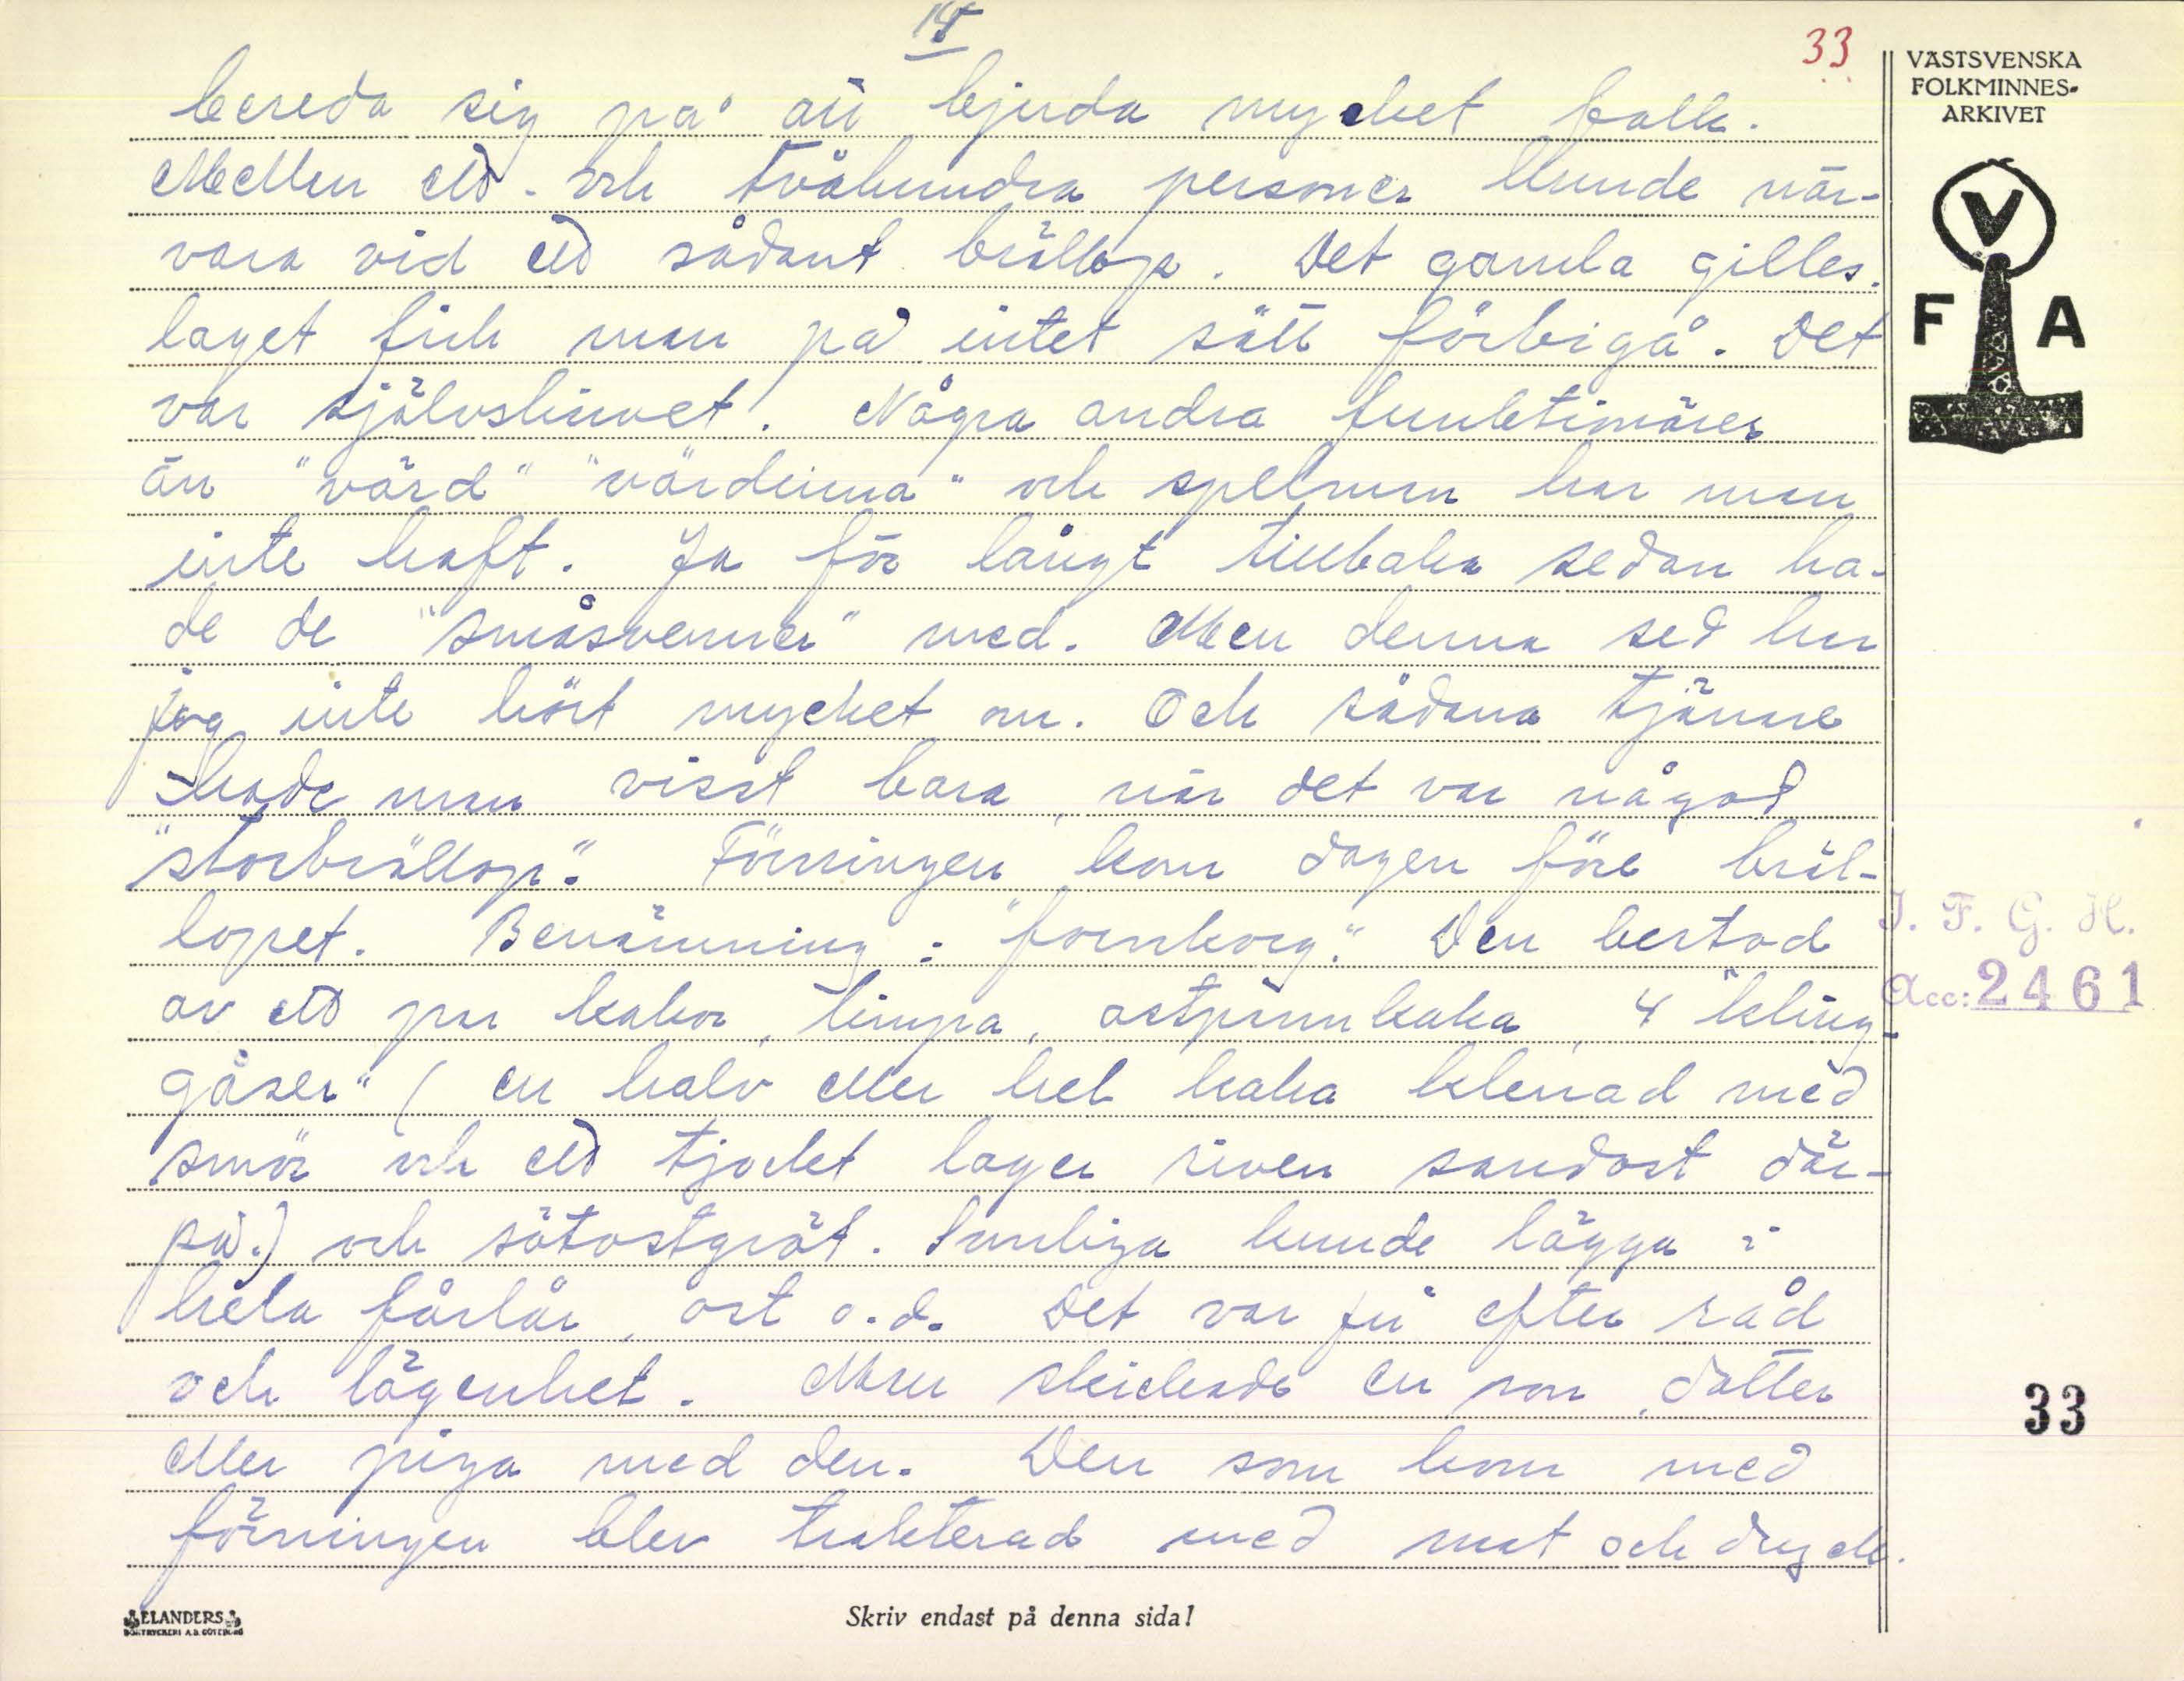 33
VÄSTSVENSKA
FOLKMINNES-
ARKIVET
bereda sig på att bjuda mycket folk.
Mellan ett- och tvåhundra personer kunde när-
vara vid ett sådant bröllop. Det gamla gilles-
laget fick man på intet sätt förbigå. Det
var självskrivet. Några andra funktionärer
än "värd" "värdinna" och spelman har man
inte haft. Ja för långt tillbaka sedan ha-
de de "småsvenner" med. Men denna sed har
jag inte hört mycket om. Och sådana tjänare
hade man visst bara, när det var något
"storbröllop". Förningen kom dagen före bröl-
lopet. Benämning: "fornkorg". Den bestod
av ett par kakor, limpa, ostpannkaka, 4 "kling-
gåser" ( en halv eller hel kaka klenad med
smör och ett tjockt lager riven sandost där-
på.) och sötostgröt. Somliga kunde lägga i
hela fårlår, ost o.d. Det var ju efter råd
och lägenhet. Man skickade en son, dotter
eller piga med den. Den som kom med
förningen blev trakterad med mat och dryck.
V
F A
I. F. G. H.
Acc: 2461
33
ELANDERS
BOKTRYCKERI A.B. GÖTEBORG
Skriv endast på denna sida!